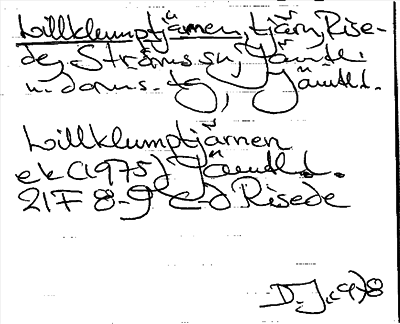 Lillklumptjärnen, tjärn, Rise-
de, Ströms sn, Jämtl.
n. doms. tg, Jämtl. l.
Lillklumptjärnen
ek (1975) Jämtl. l.
21F 8-9 c-d Risede
D. J. 1978